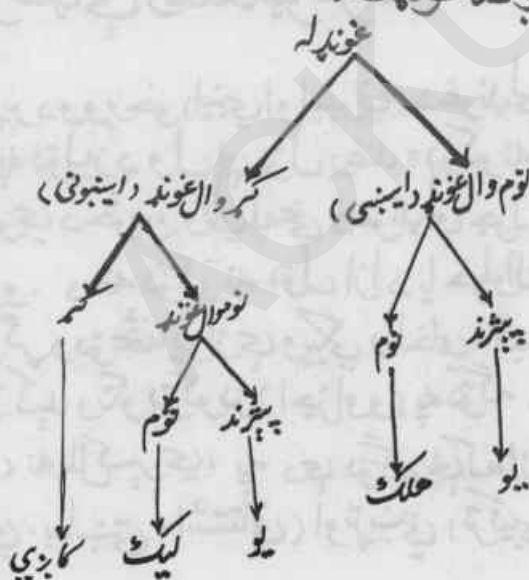 غونډله
نوم وال غونډ کړ وال غونډ
پېژند نوم نوموال غونډ کړ
پېژند نوم
یو هلک
یو لیک کاږي